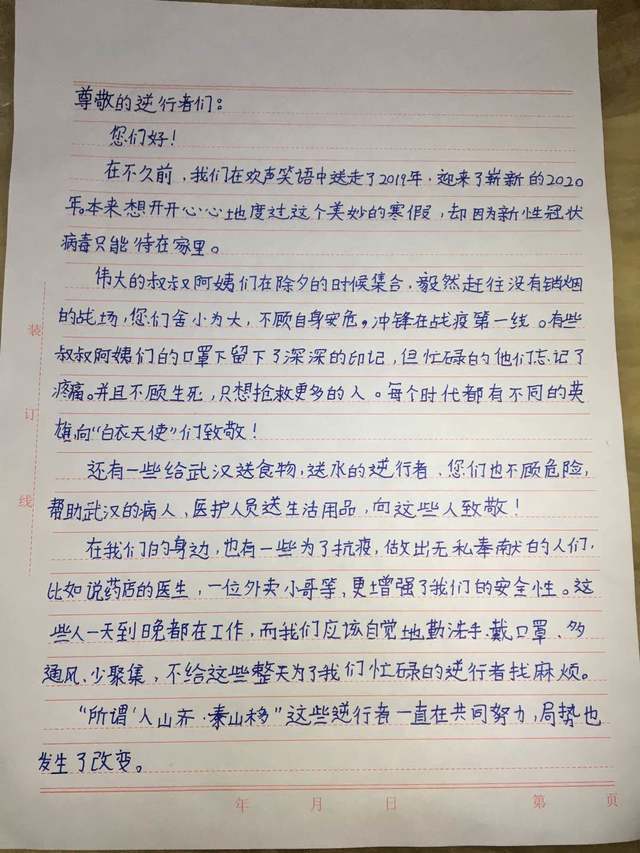 尊敬的逆行者们：
您们好！
在不久前，我们在欢声笑语中送走了2019年，迎来了崭新的2020
年。本来想开开心心地度过这个美妙的寒假，却因为新性冠状
病毒只能待在家里。
伟大的叔叔阿姨们在除夕的时候集合，毅然赶往没有硝烟
的战场，您们舍小为大，不顾自身安危，冲锋在战疫第一线。有些
叔叔阿姨们的口罩下留下了深深的印记，但忙碌的他们忘记了
疼痛。并且不顾生死，只想抢救更多的人。每个时代都有不同的英
雄，向“白衣天使”们致敬！
还有一些给武汉送食物，送水的逆行者、您们也不顾危险，
帮助武汉的病人、医护人员送生活用品，向这些人致敬！
在我们的身边，也有一些为了抗疫，做出无私奉献的人们，
比如说药店的医生，一位外卖小哥等，更增强了我们的安全性。这
些人一天到晚都在工作，而我们应该自觉地勤洗手、戴口罩、多
通风、少聚集，不给这些整天为了我们忙碌的逆行者找麻烦。
“所谓‘人山齐·泰山移”这些逆行者一直在共同努力，局势也
发生了改变。
装
订
线
年 月 日 第 页